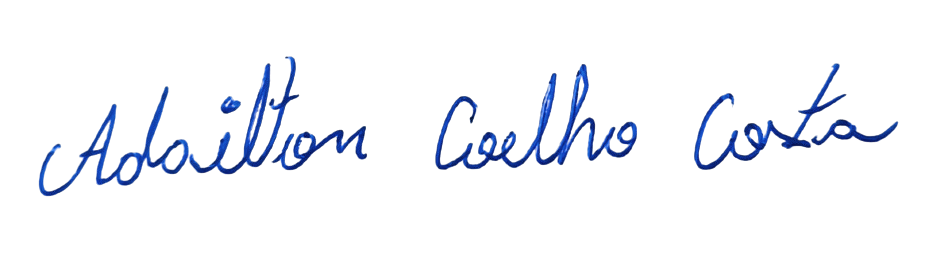 Adailton Coelho Costa